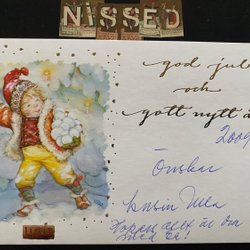 NISSED
god jul
och
gott nytt å
2009
Önskar
kusin Ulla
Hoppas allt är bra
med Er!